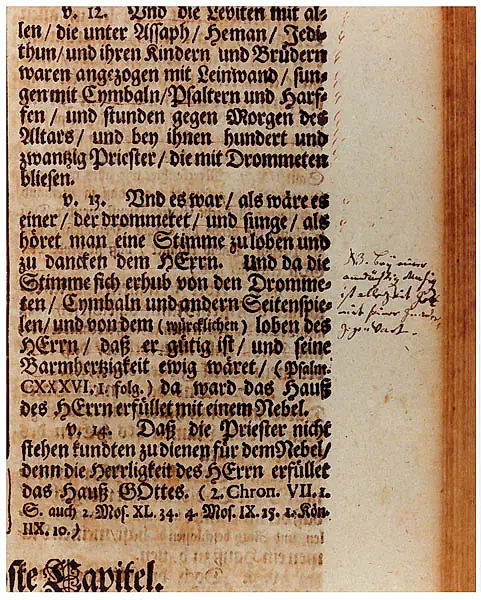 v. 12. Vnd die Leviten mit al-
len/ die unter Assaph/ Heman/ Jedi-
thun/ und ihren Kindern und Brüdern
waren angezogen mit Leinwand/ sun-
gen mit Cymbaln/ Psaltern und Harf-
fen/ und stunden gegen Morgen des
Altars/ und bey ihnen hundert und
zwantzig Priester/ die mit Drommeten
bliesen.
v. 13. Vnd es war/ als wäre es
einer/ der drommetet/ und sunge/ als
höret man eine Stimme zu loben und
zu dancken dem HErrn. Und da die
Stimme sich erhub von den Dromme-
ten/ Cymbaln und andern Seitenspie-
len/ und von dem (würcklichen) loben des
HErrn/ daß er gütig ist/ und seine
Barmhertzigkeit ewig wäret/ (Psalm.
CXXXVI. 1. folg.) da ward das Hauß
des HErrn erfüllet mit einem Nebel.
v. 14. Daß die Priester nicht
stehen kundten zu dienen für dem Nebel/
denn die Herrligkeit des HErrn erfüllet
das Hauß GOttes. (2. Chron. VII. 1.
S. auch 2. Mos. XL. 34. 4. Mos. IX. 15. 1. Kön.
IIX. 10.)
ste Capitel.
NB. Bey einer
andächtig Musiq
ist allezeit Gott
mit seiner Gnaden
Gegenwart.